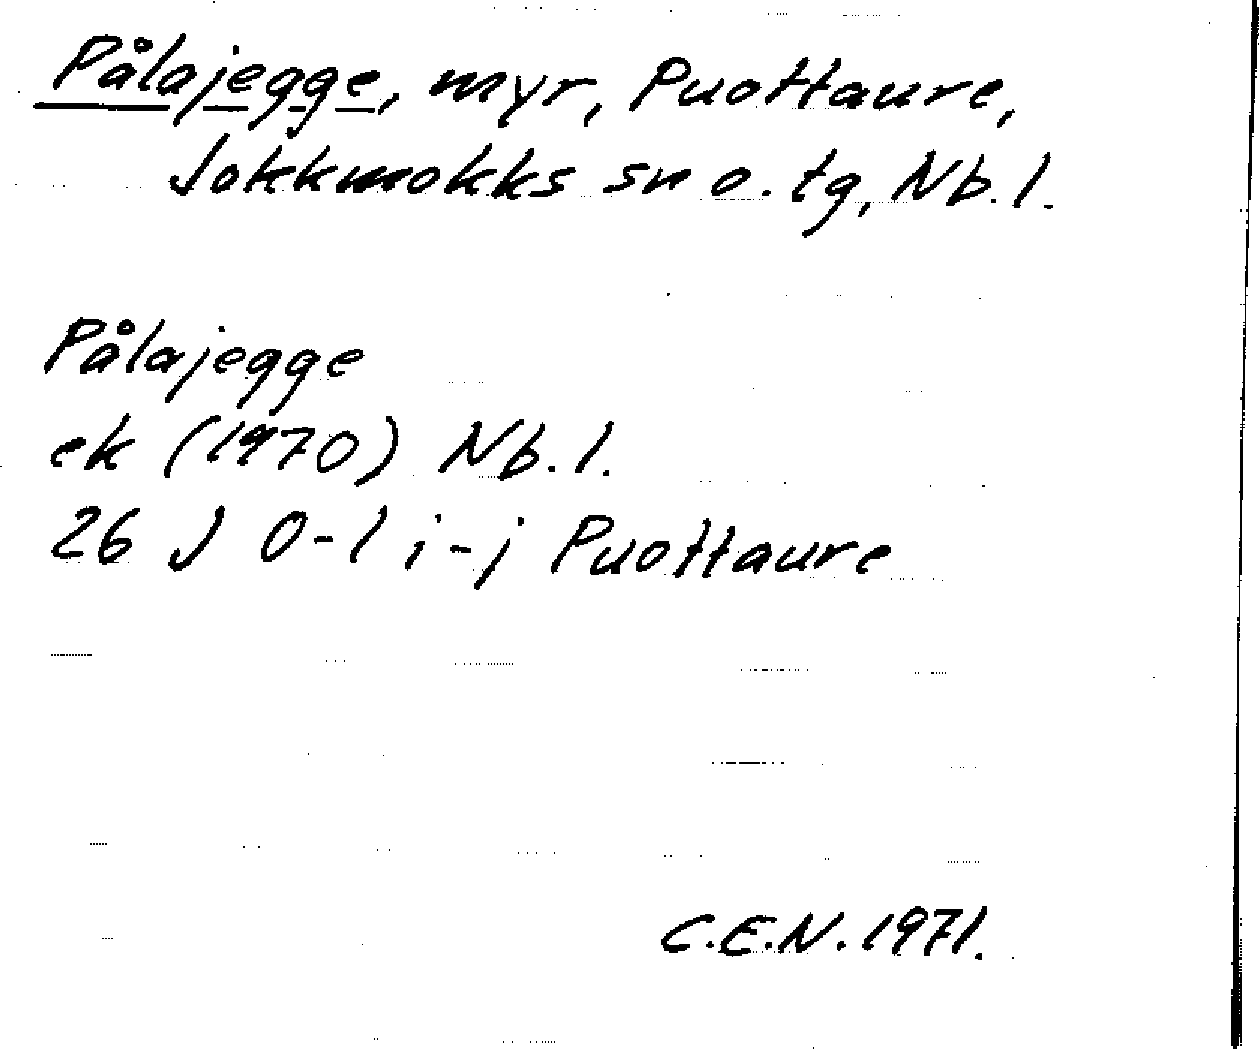 Pålajegge, myr, Puottaure,
Jokkmokks sn o. tg, Nb. l.
Pålajegge
ek (1970) Nb. l.
26 J 0-1 i-j Puottaure
C.E.N. 1971.